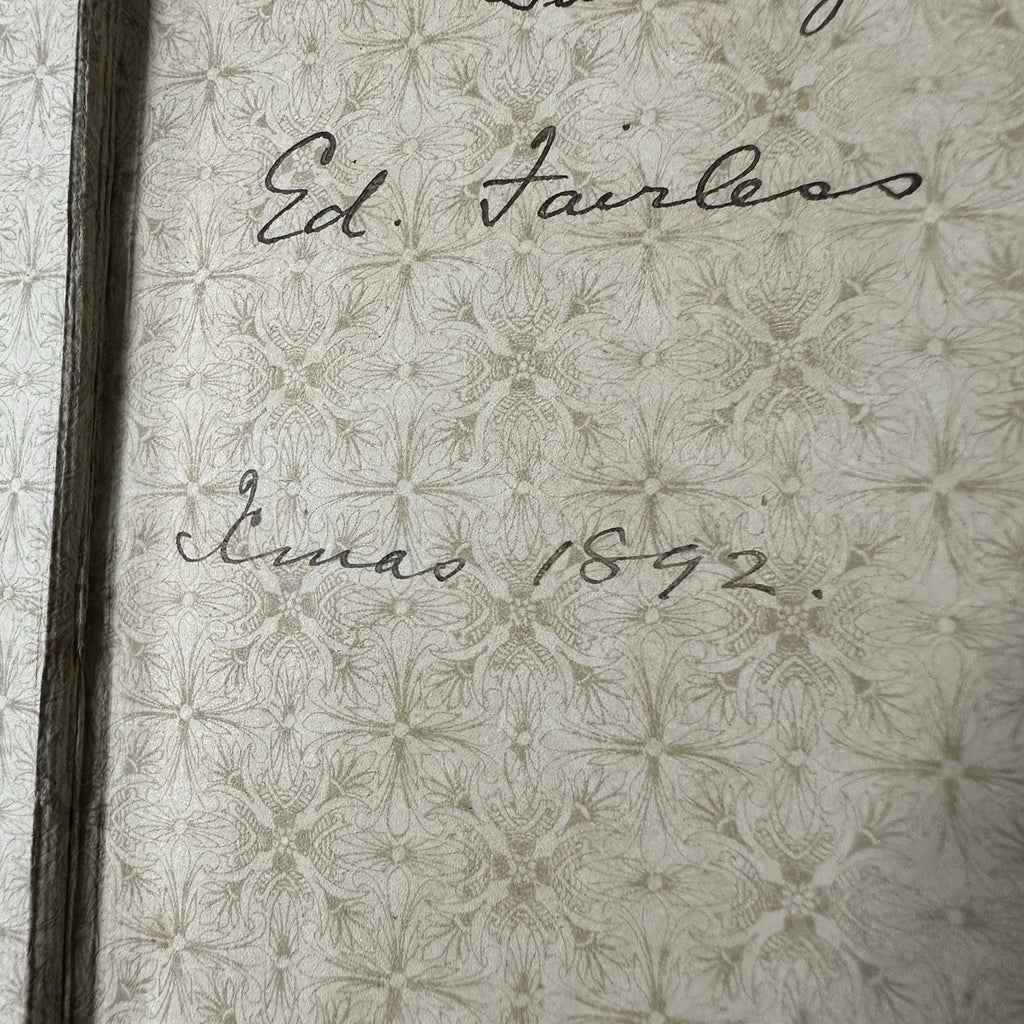 Ed. Fairless
Xmas 1892.